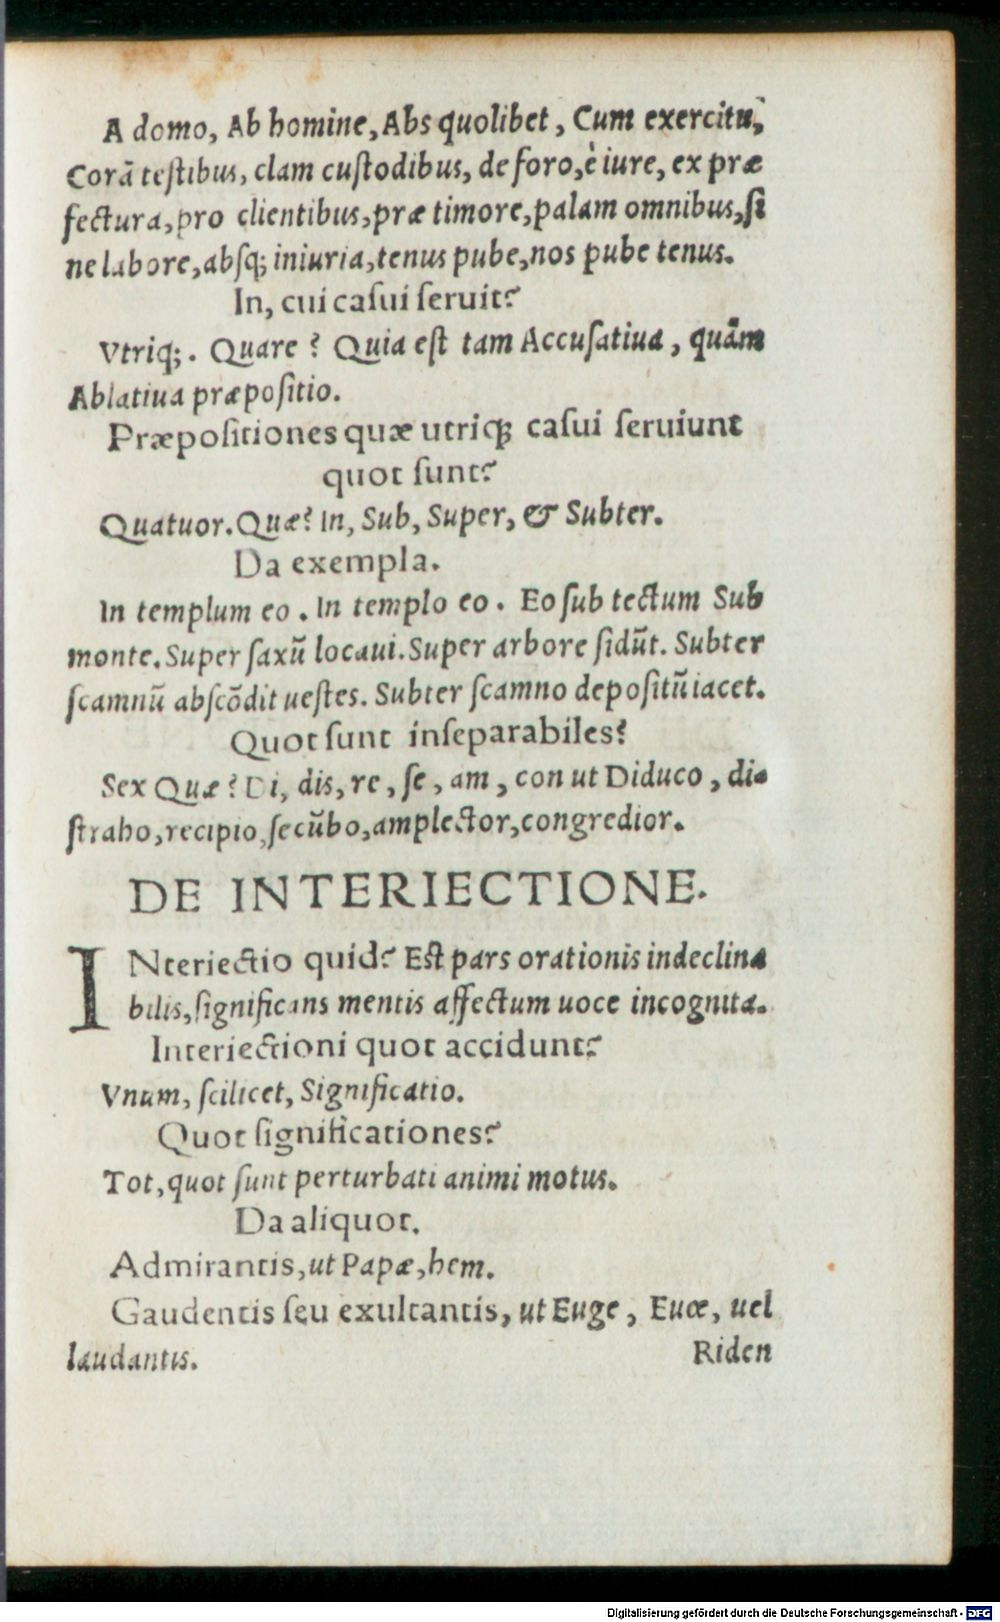 A domo, Ab homine, Abs quolibet, Cum exercitu,
Corã teſtibus, clam cuſtodibus, de foro, è iure, ex præ
fectura, pro clientibus, præ timore, palam omnibus, ſi
ne labore, abſq; iniuria, tenus pube, nos pube tenus.
In, cui caſui ſeruit?
Vtriq;. Quare? Quia eſt tam Accuſatiua, quàm
Ablatiua præpoſitio.
Præpoſitiones quæ utriq; caſui ſeruiunt
quot ſunt?
Quatuor. Quæ? In, Sub, Super, & Subter.
Da exempla.
In templum eo. In templo eo. Eo ſub tectum Sub
monte. Super ſaxũ locaui. Super arbore ſidũt. Subter
ſcamnũ abſcõdit ueſtes. Subter ſcamno depoſitũ iacet.
Quot ſunt inſeparabiles?
Sex Quæ? Di, dis, re, ſe, am, con ut Diduco, di-
ſtraho, recipio, ſecũbo, amplector, congredior.
DE INTERIECTIONE.
INteriectio quid? Eſt pars orationis indeclina
bilis, ſignificans mentis affectum uoce incognita.
Interiectioni quot accidunt?
Vnum, ſcilicet, Significatio.
Quot ſignificationes?
Tot, quot ſunt perturbati animi motus.
Da aliquot.
Admirantis, ut Papæ, hem.
Gaudentis ſeu exultantis, ut Euge, Euœ, uel
laudantis. Riden
Digitalisierung gefördert durch die Deutsche Forschungsgemeinschaft - DFG